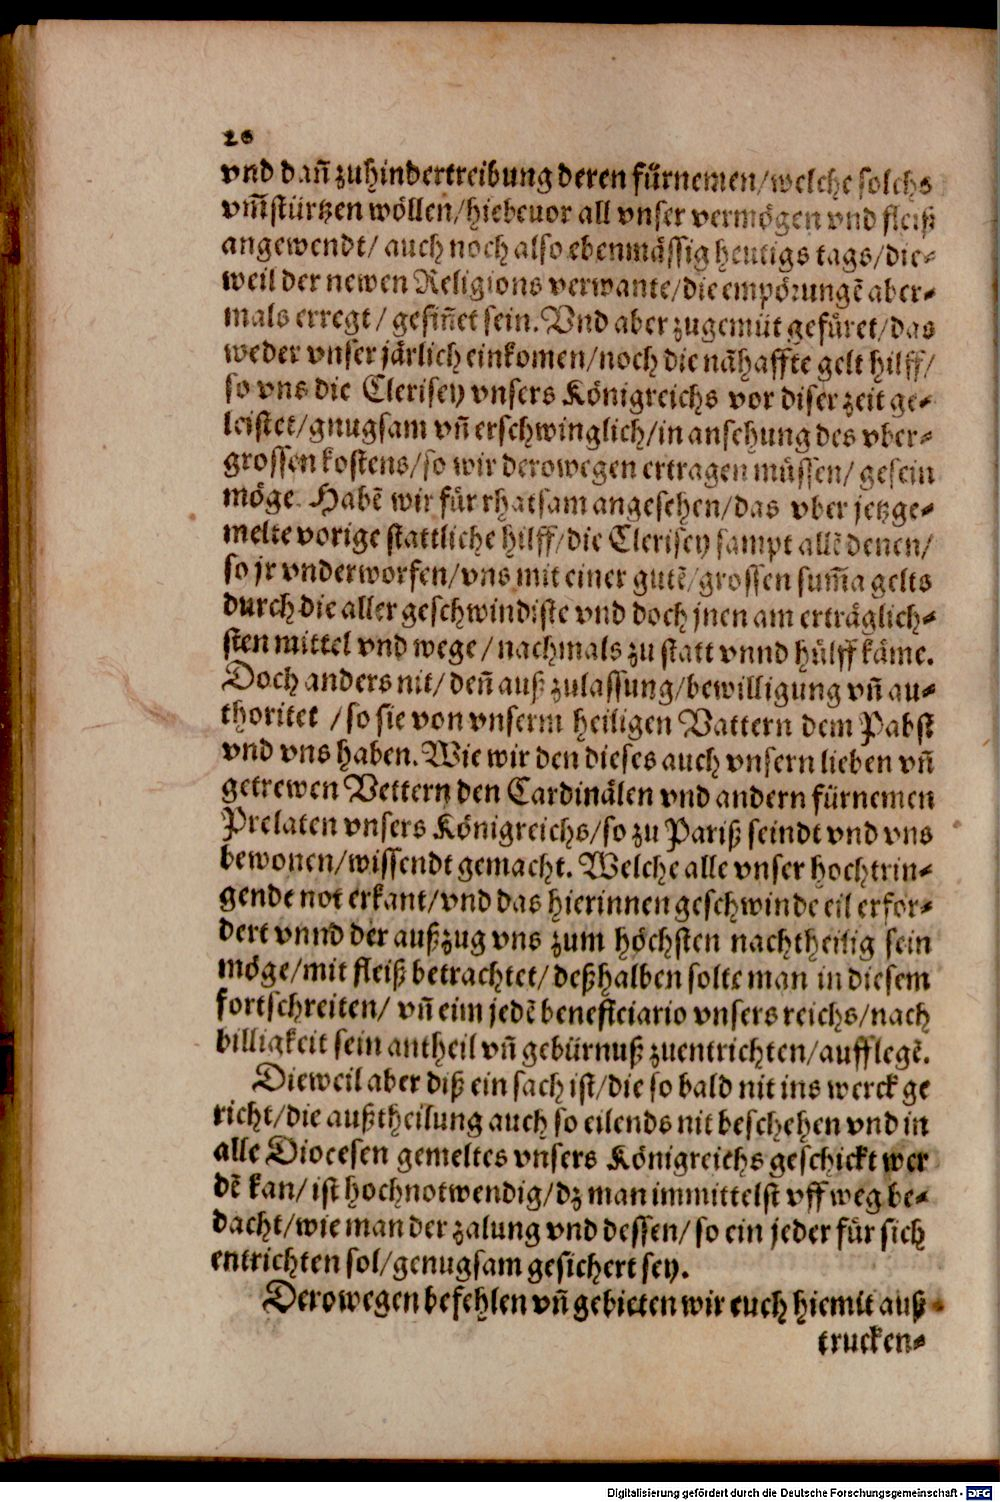 20
vnd dañ zuhindertreibung deren fürnemen/welche solchs
vm̃stürtzen wöllen/hiebeuor all vnser vermögen vnd fleiß
angewendt/ auch noch also ebenmässig heutigs tags/die⸗
weil der newen Religions verwante/die empörungẽ aber⸗
mals erregt/ gesiñet sein. Vnd aber zugemüt gefüret/das
weder vnser järlich einkomen/noch die nãhaffte gelt hilff/
so vns die Clerisey vnsers Königreichs vor diser zeit ge⸗
leistet/gnugsam vñ erschwinglich/in ansehung des vber⸗
grossen kostens/so wir derowegen ertragen müssen/ gesein
möge. Habẽ wir für rhatsam angesehen/das vber jetzge⸗
melte vorige stattliche hilff/die Clerisey sampt allẽ denen/
so jr vnderworfen/vns mit einer gutẽ/grossen sum̃a gelts
durch die aller geschwindiste vnd doch jnen am erträglich⸗
sten mittel vnd wege/nachmals zu statt vnnd hülff käme.
Doch anders nit/ deñ auß zulassung/bewilligung vñ au⸗
thoritet /so sie von vnserm heiligen Vattern dem Pabst
vnd vns haben. Wie wir den dieses auch vnsern lieben vñ
getrewen Vettern den Cardinälen vnd andern fürnemen
Prelaten vnsers Königreichs/so zu Pariß seindt vnd vns
bewonen/wissendt gemacht. Welche alle vnser hochtrin⸗
gende not erkant/vnd das hierinnen geschwinde eil erfor⸗
dert vnnd der außzug vns zum höchsten nachtheilig sein
möge/mit fleiß betrachtet/ deßhalben solte man in diesem
fortschreiten/ vñ eim jedẽ beneficiario vnsers reichs/nach
billigkeit sein antheil vñ gebürnuß zuentrichten/aufflegẽ.
Dieweil aber diß ein sach ist/die so bald nit ins werck ge
richt/die außtheilung auch so eilends nit beschehen vnd in
alle Diocesen gemeltes vnsers Königreichs geschickt wer
dẽ kan/ ist hochnotwendig/dz man immittelst vff weg be⸗
dacht/wie man der zalung vnd dessen/ so ein jeder für sich
entrichten sol/genugsam gesichert sey.
Derowegen befehlen vñ gebieten wir euch hiemit auß
trucken⸗
Digitalisierung gefördert durch die Deutsche Forschungsgemeinschaft - DFG